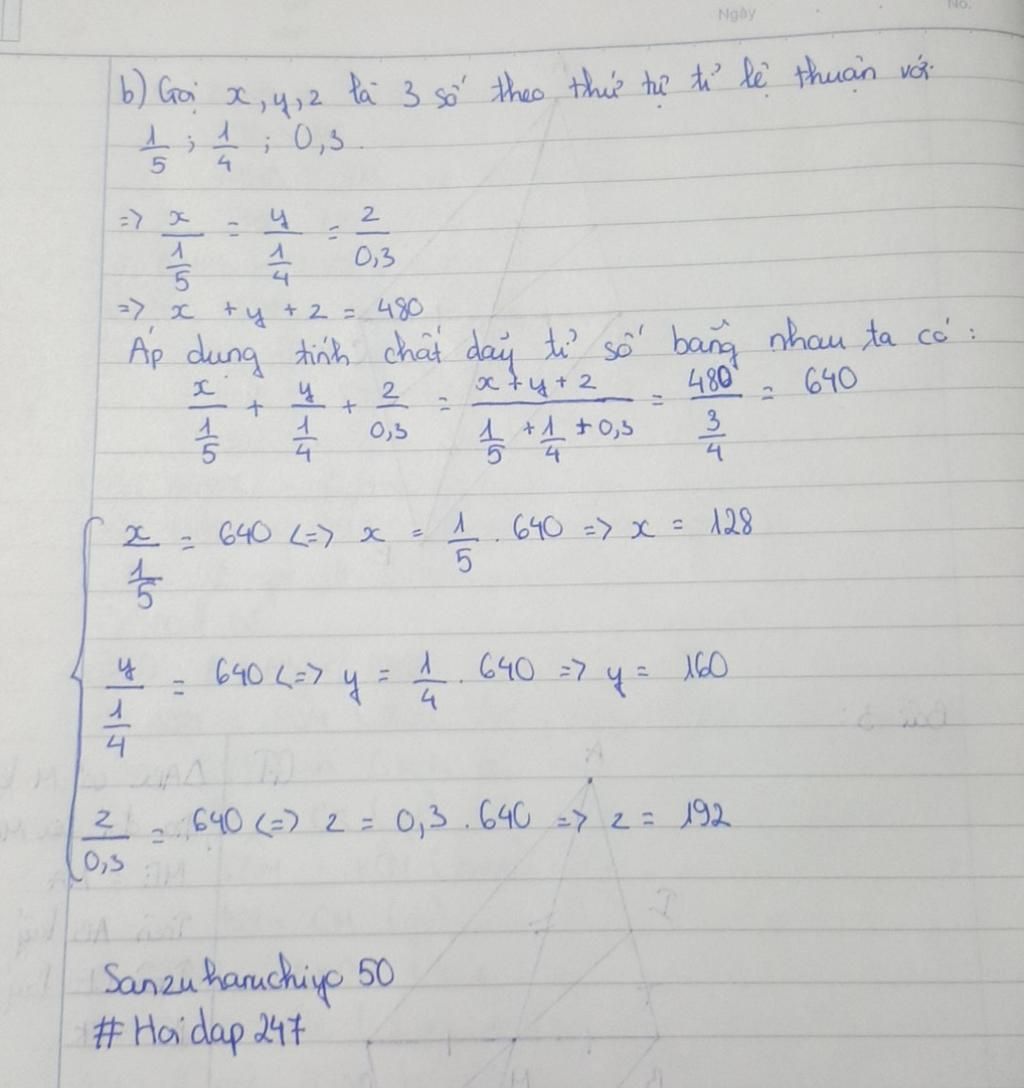 Ngày
No.
b) Gọi x, y, z là 3 số theo thứ tự tỉ lệ thuận với
1/5 ; 1/4 ; 0,3.
=> x/(1/5) = y/(1/4) = z/0,3
=> x + y + z = 480
Áp dụng tính chất dãy tỉ số bằng nhau ta có:
x/(1/5) + y/(1/4) + z/0,3 = (x + y + z)/(1/5 + 1/4 + 0,3) = 480/(3/4) = 640
x/(1/5) = 640 <=> x = 1/5 . 640 => x = 128
y/(1/4) = 640 <=> y = 1/4 . 640 => y = 160
z/0,3 = 640 <=> z = 0,3 . 640 => z = 192
Sanzuharuchiyo 50
# Hoidap 247